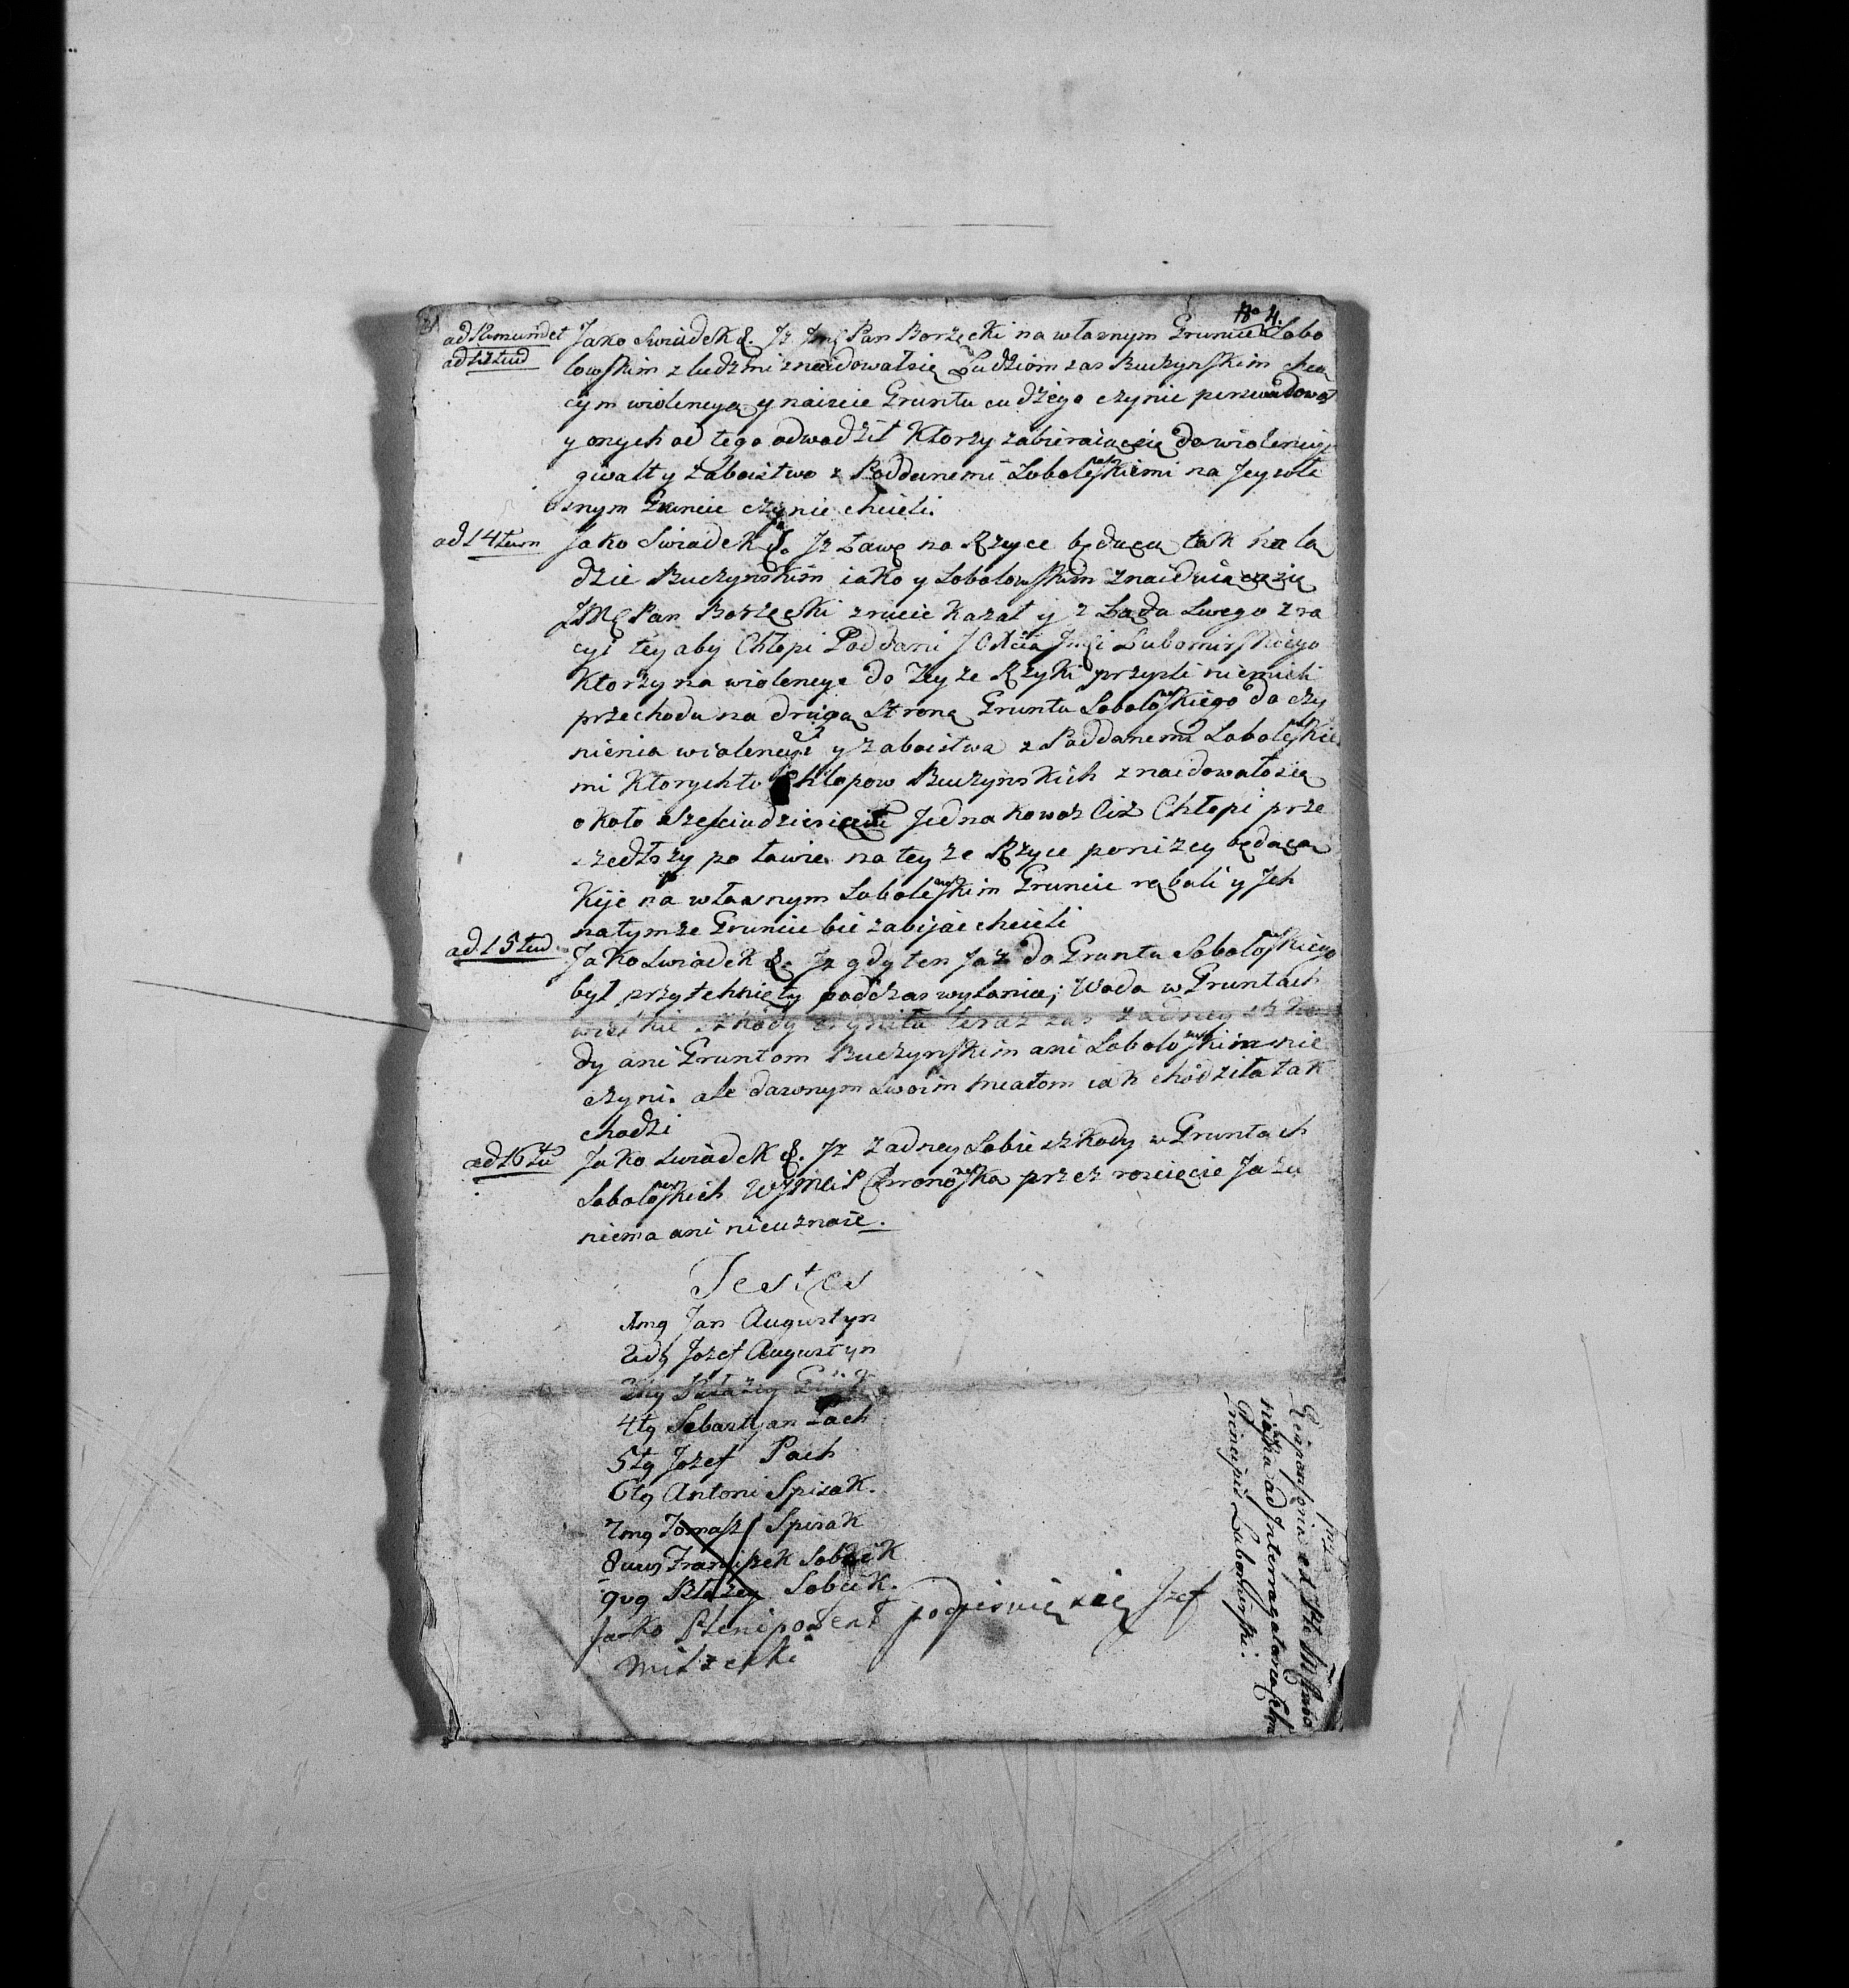 No 4.
ad 12mum et Jako Swiadek &. Jz Jmę Pan Borzęcki na własnym Gruncie Sobo
ad 13tiud
lowskim z ludzmi znaidował się Ludziom zas Buczynskim chcą
cym wiolencyą y naiscie Gruntu cudzego czynic perswadował
y onych od tego odwodził Ktorzy zabieraiąc się do wiolencyi
gwałt y zaboistwo z Poddanemi Sobolewskiemi na Jey wła
snym Gruncie czynic chcieli.
ad 14tum Jako Swiadek &. Jz Ławę na Rzyce będącą tak na lą
dzie Buczynskim iako y Sobolowskim znaiduiącą się
JMę Pan Borzęcki zrucic Kazał y z Lądu Swego z ra
cyi tey aby Chłopi Poddani JOXcia Jmci Lubomirskiego
Ktorzy na wiolencye do Teyze Rzyki przyszli niemieli
przechodu na drugą Stronę Gruntu Sobolowskiego do czy
nienia wiolencyi y zaboistwa z Poddanemi Sobolewskie
mi Ktorychto Chłopow Buczynskich znaidowało się
około szesciudziesięciu Jednakowoz Ciz Chłopi prze
szedłszy po ławie na teyze Rzyce ponizey będącą
Kije na własnym Sobolewskim Gruncie rąbali y Jch
natymze Gruncie bic zabijac chcieli
ad 15tud Jako Swiadek &. Jz gdy ten Jaz do Gruntu Sobolowskiego
był przytchnięty podczas wylania; Woda w Gruntach
wielkie szkody czyniła teraz zas zadney szko
dy ani Gruntom Buczynskim ani Sobolowskim nie
czyni. ale dawnym Swoim micałom iak chodziła tak
chodzi
ad 16tu Jako Swiadek &. Jz zadney Sobie szkody w Gruntach
Sobolowskich WJmci P Chronowska przez rozcięcie Jazu
niema ani nieuznaie.
Testes
1mg Jan Augustyn
2dg Jozef Augustyn
3tig Błazey
4tg Sebastyan Pach
5tg Jozef Pach
6tg Antoni Spisak.
7mg Tomasz Spisak
8uug Franciszek Sobcik
9ug Błazey Sobcik.
Jako Plenipotent podpisuię się Jzef
Milzecki
Responsoria ex Pte
nowska ad Interrogatoria Celmi
Principis Lubomirski.